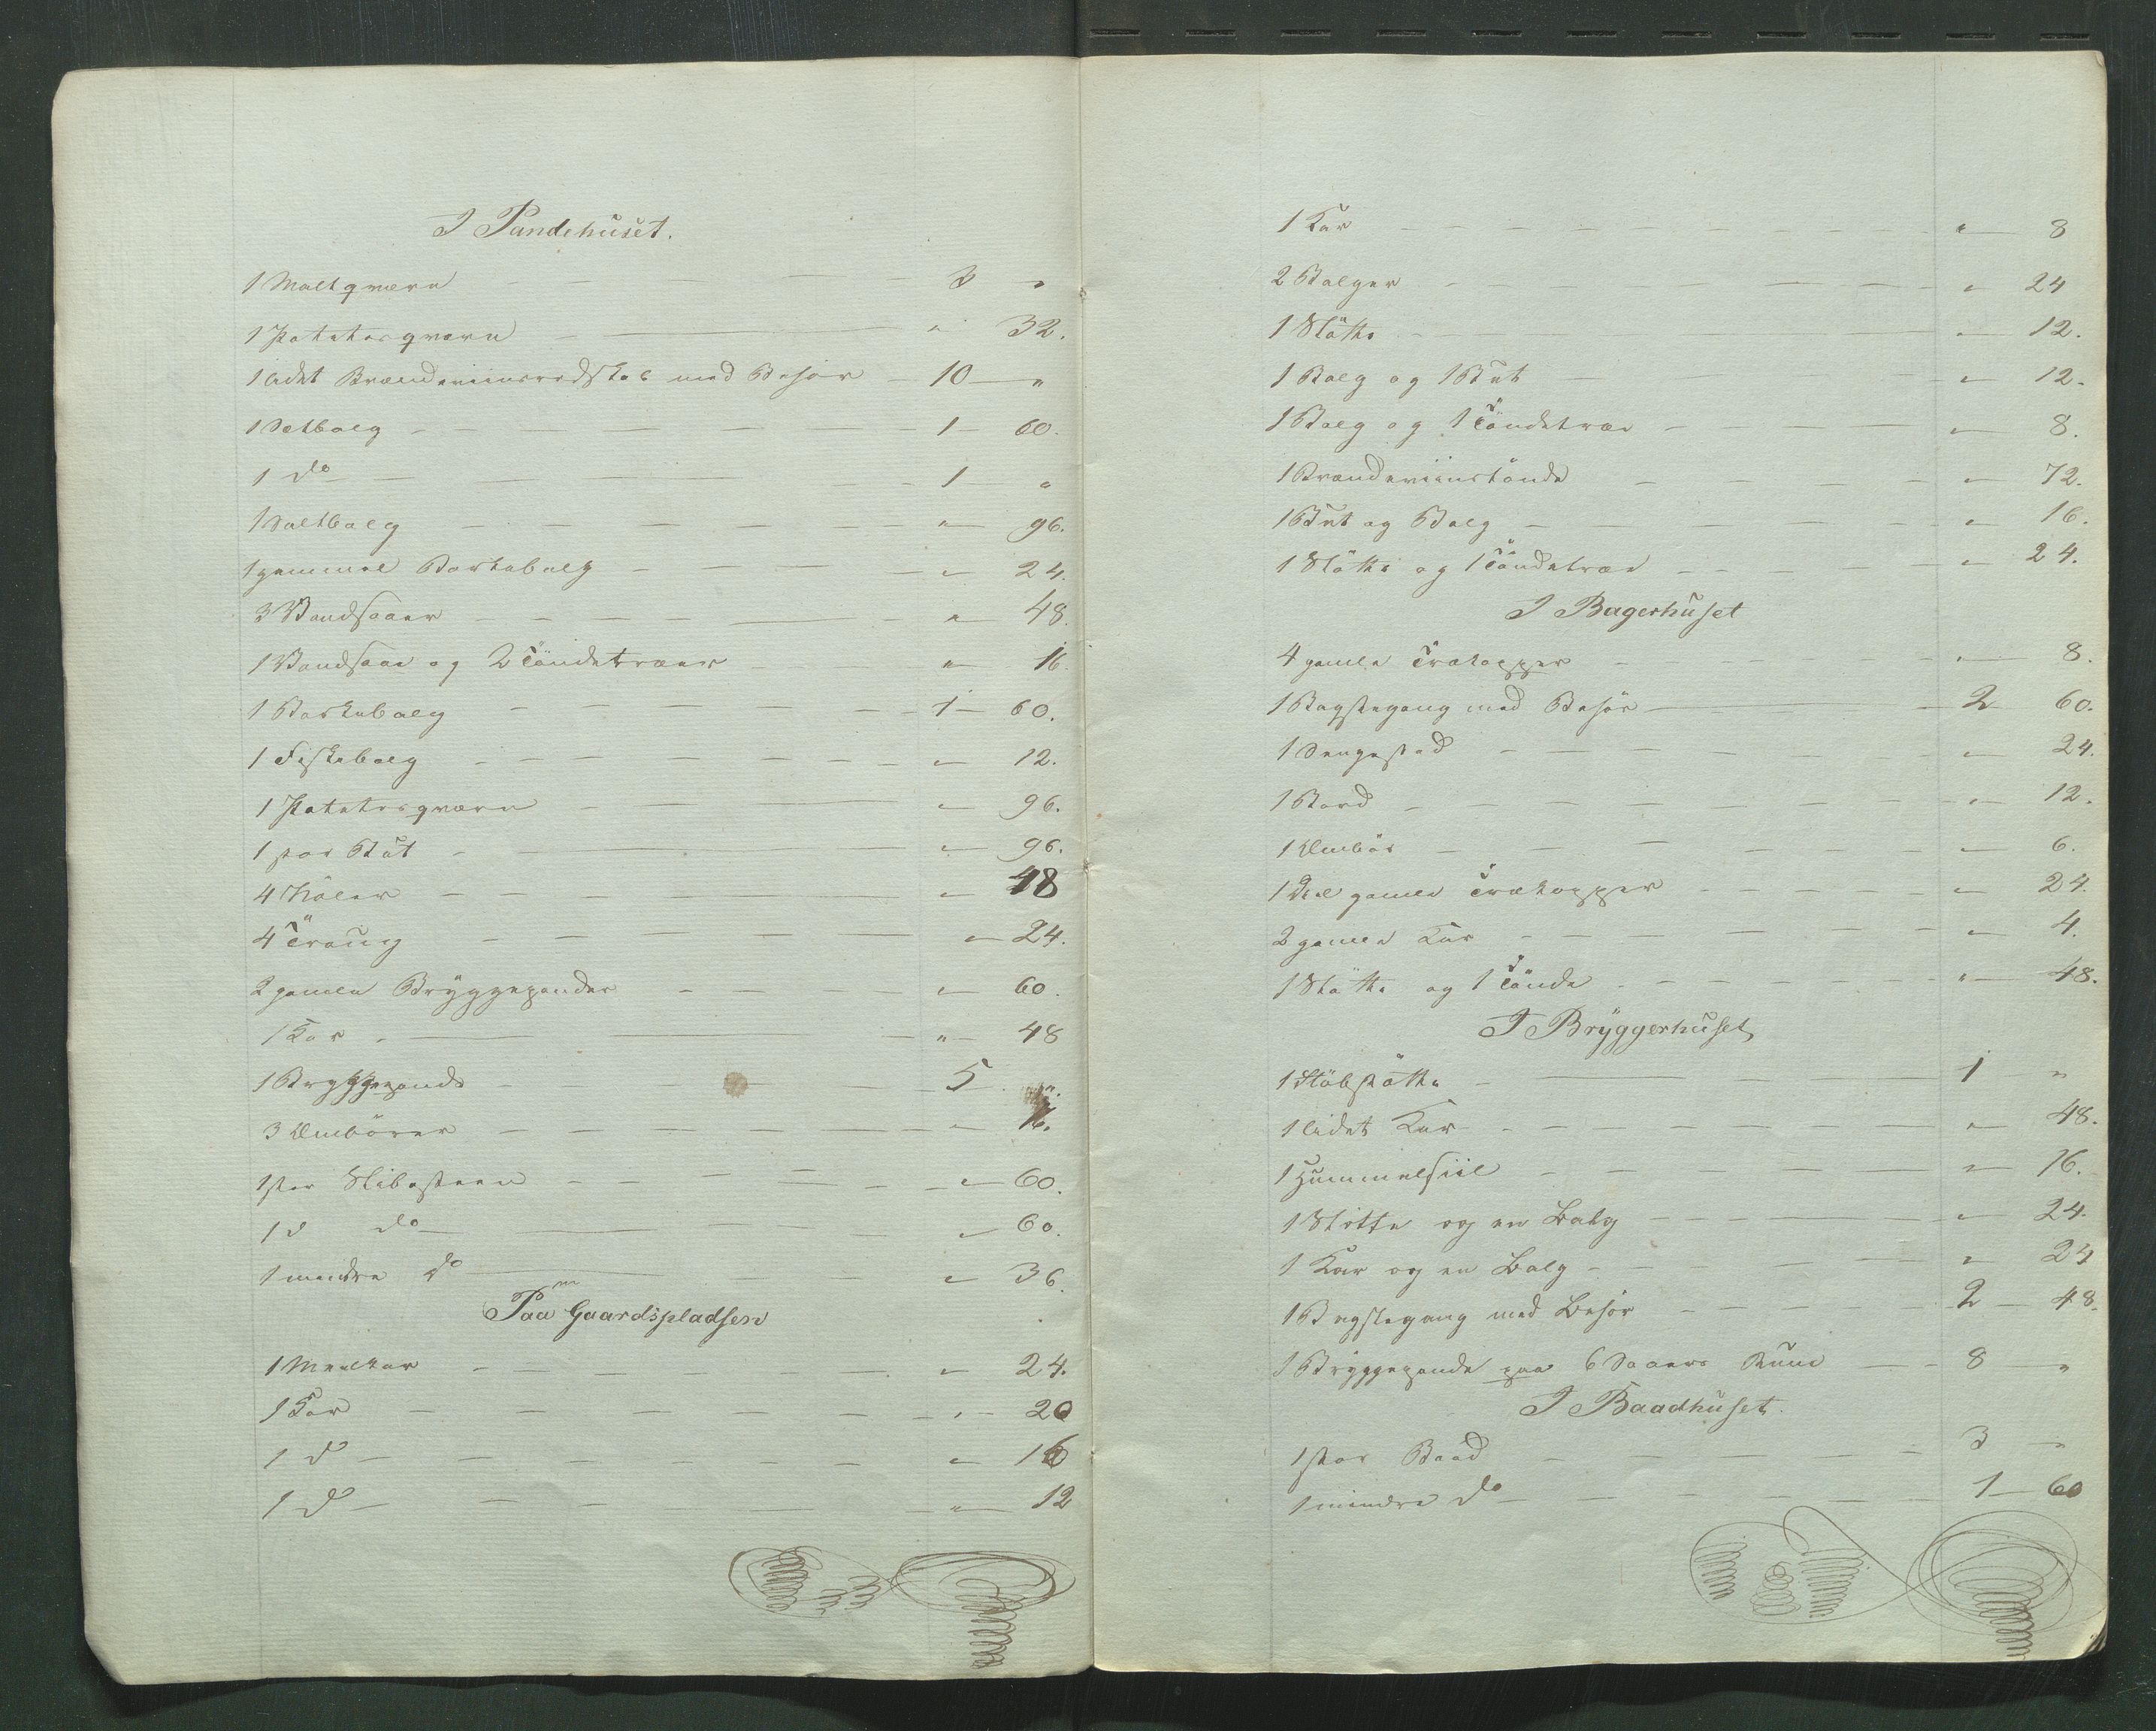 I Pandehuset.
1 Maltqværn - - - 3 "
1 Potetesqværn - " 32.
1 lidet Brændeviinsredskab med Behør - 10 - "
1 Setbalg - - - 1 - 60.
1 do - - - 1 - "
1 Saltbalg - - - " 96.
1 gammel Vaskebalg - - - " 24.
3 Vandsaaer - - - " 48.
1 Vandsaae og 2 Töndetræer - - " 16.
1 Vaskebalg - - - 1 - 60.
1 Fiskebalg - - - " 12.
1 Potetesqværn - - " 96.
1 stor Büt - - " 96.
4 - - - " 48
4 Traüg - - - " 24.
2 gamle Bryggepander - - - " 60.
1 Kar - - " 48
1 Bryggepande - - 5
3 Embörer - - - " 16.
1 stor Slibesteen - - - " 60.
1 d do - - - " 60.
1 mindre do - - " 36.
Paa Gaardspladsen
1 Meelkar - - - " 24.
1 Kar - - - " 20
1 do - - - " 16
1 do - - - " 12
1 Kar - - - " 8
2 Balger - - - " 24
1 Stötte - - - " 12.
1 Balg og 1 Büt - - " 12.
1 Balg og 1 Töndetræe - - " 8.
1 Brændeviinstönde - - - " 72.
1 Büt og Balg - - - " 16.
1 Stötte og 1 Töndetræe - - - " 24.
I Bagerhuset
4 gamle Trækopper - - - " 8.
1 Bagstegang med Behör - 2 60.
1 Sengested - - - " 24.
1 Bord - - - " 12.
1 Embör - - - " 6.
1 Deel gamle Trækopper - - - " 24.
2 gamle Kar - - - " 4.
1 Stötte og 1 Tönde - - - " 48.
I Brÿggerhuset
1 - - 1 "
1 lidet Kar - - - " 48.
1 Hummelsiil - - - " 16.
1 Stötte og en Balg - - - " 24.
1 Kar og en Balg - - - " 24
1 Bagstegang med Behör - - - 2 - 48.
1 Brÿggepande paa 6 Saaers Rum - - 8 "
I Baadhuset.
1 stor Baad - - - 3 - "
1 mindre do - - - 1 - 60